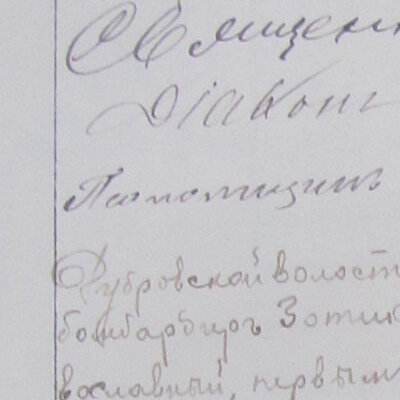 Священн
Діаконъ
Псаломщикъ
Дубровской волост
бомбардиръ Зотик
вославный, первым